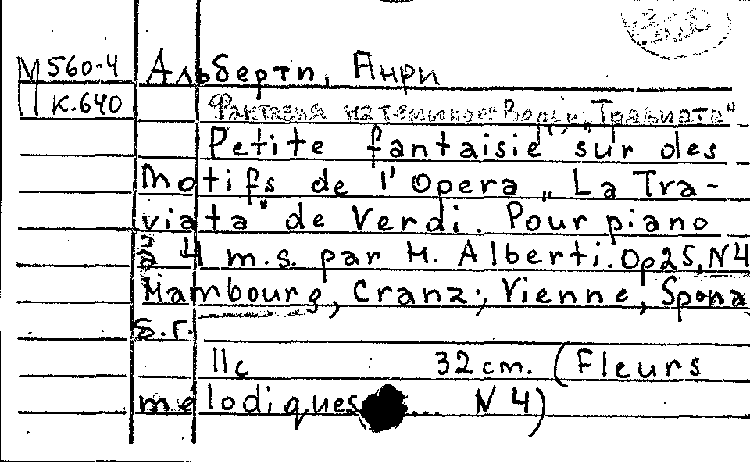 М 560-4 Альберти, Анри
К.640 Фантазия на темы из оперы Верди „Травиата"
Petite fantaisie sur des
motifs de l' Opera „La Tra-
viata" de Verdi. Pour piano
à 4 m.s. par H. Alberti. Op25, N4
Hambourg, Cranz; Vienne, Spina
б.г.
11с 32 cm. (Fleurs
mélodiques ... N 4)